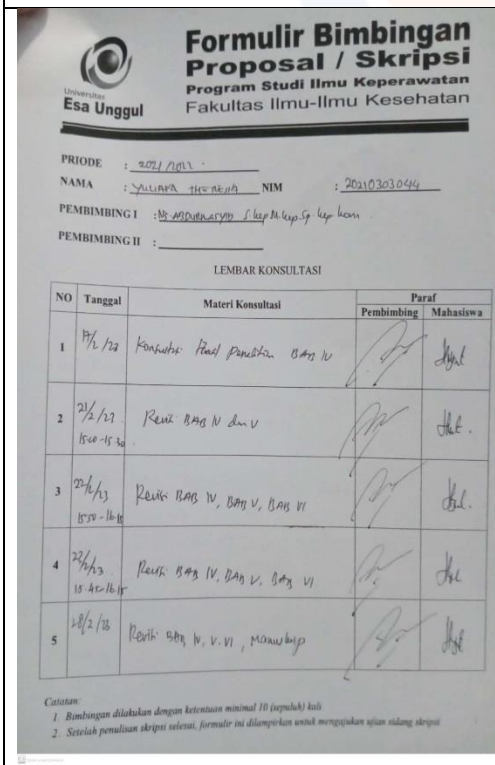 Formulir Bimbingan
Proposal / Skripsi
Program Studi Ilmu Keperawatan
Fakultas Ilmu-Ilmu Kesehatan
Universitas
Esa Unggul
PRIODE : 2021/2022.
NAMA : YULIANA THERESIA NIM : 20210303044
PEMBIMBING I : Ns ABDURRASYID S.kep M.kep Sp. kep kom.
PEMBIMBING II :
LEMBAR KONSULTASI
NO Tanggal Materi Konsultasi Paraf
Pembimbing Mahasiswa
1 17/2/23 Konsultasi Hasil Penelitian BAB IV
2 21/2/23 Revisi BAB IV dan V
15.00-15.30
3 22/2/23 Revisi BAB IV, BAB V, BAB VI
15.50-16.15
4 BAB IV, BAB V, BAB VI
15.45-16.15
5 28/2/23 Revisi BAB IV, V, VI,
Catatan:
1. Bimbingan dilakukan dengan ketentuan minimal 10 (sepuluh) kali
2. Setelah penulisan skripsi selesai, formulir ini dilampirkan untuk mengajukan ujian sidang skripsi